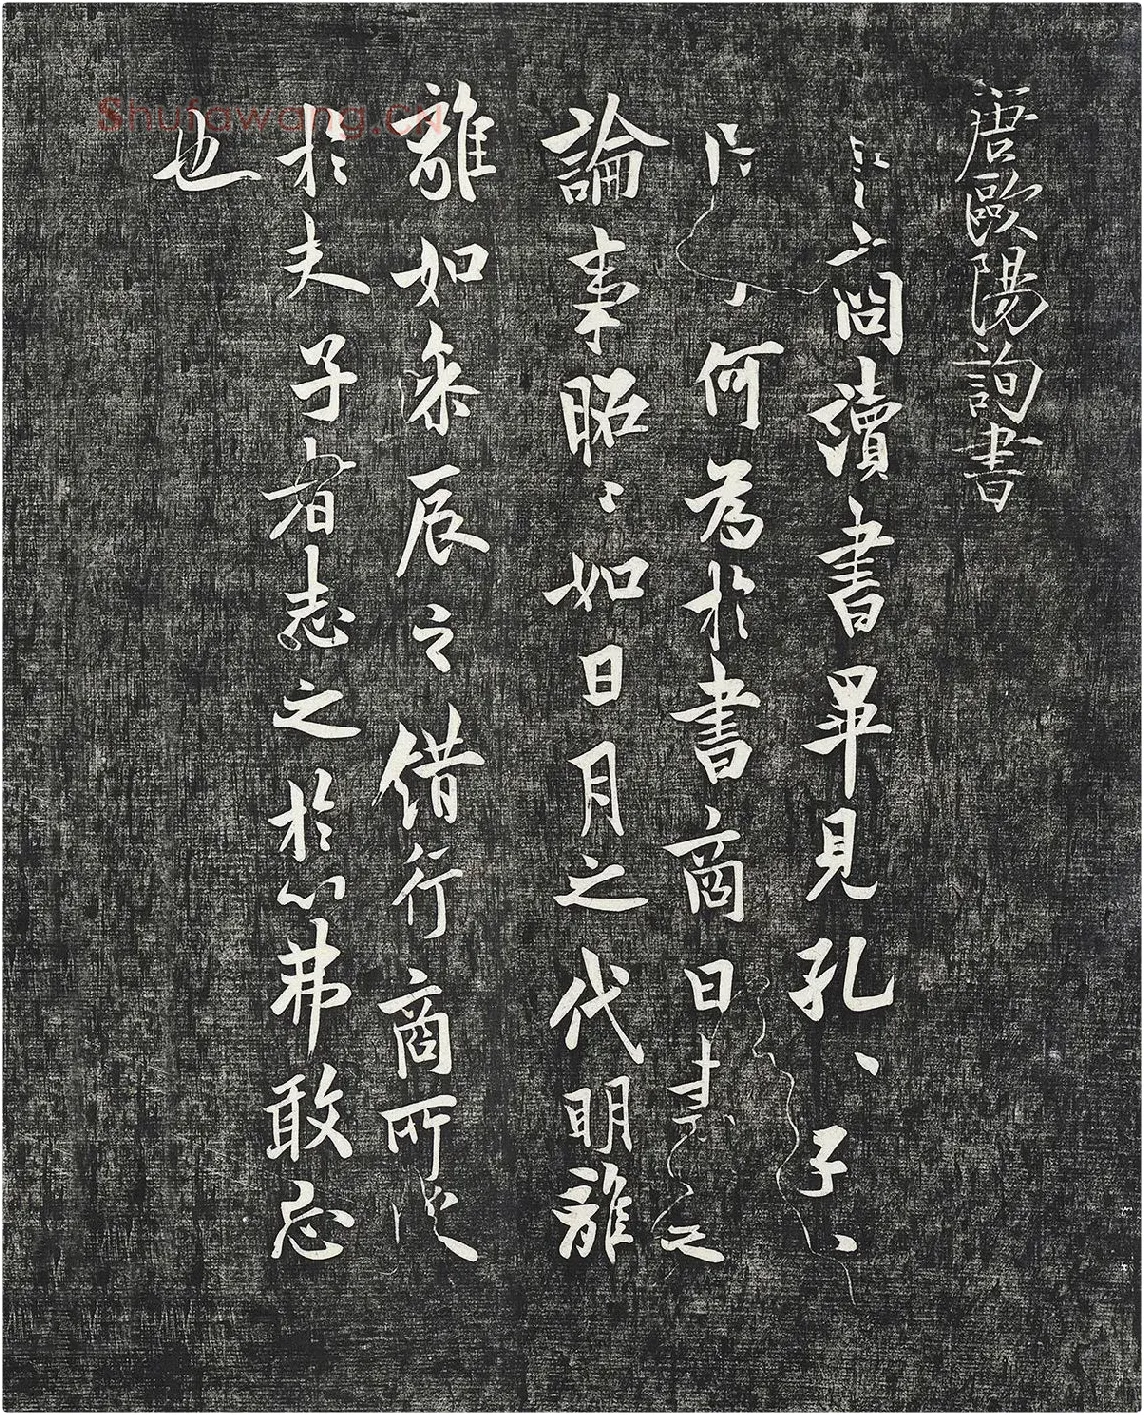 唐歐陽詢書
卜商讀書畢見孔、子、
何為於書商曰書之
論事昭〻如日月之代明離
離如參辰之錯行商所受
於夫子者志之於心弗敢忘
也
Shufawang.CN